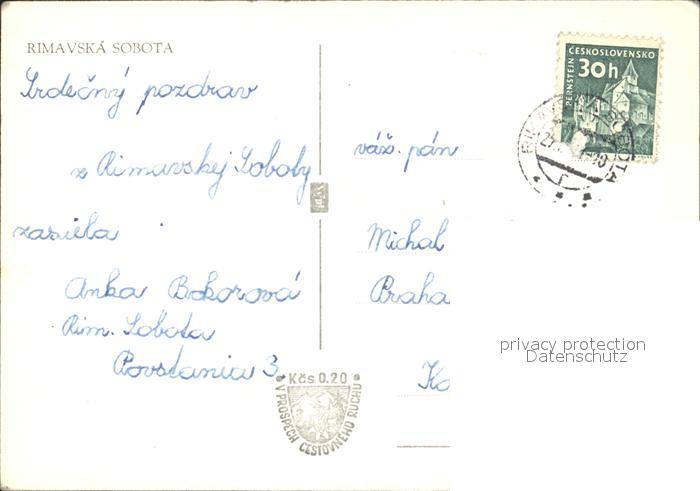 RIMAVSKÁ SOBOTA
Srdečný pozdrav
z Rimavskej Soboty
zasiela
Anka Bokorová
Rim. Sobota
Povstania 3.
Kčs 0.20
V PROSPECH CESTOVNÉHO RUCHU
ČESKOSLOVENSKO
30h
PERNŠTEJN
RIMAVSKÁ SOBOTA
váž. pán
Michal
Praha
Ko
privacy protection
Datenschutz